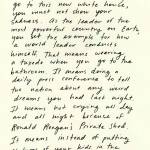 go to this new white house,
you must not show your
sadness. As the leader of the
most powerful country on Earth
you set the example for how
a world leader conducts
himself. That means wearing
a tuxedo when you go to the
bathroom. It means doing a
daily press conference to tell
the nation about any weird
dreams you had last night.
It means not crying all day
and all night because of
Ronald Reagan's Private Shed.
It means instead of putting
of your kids in the